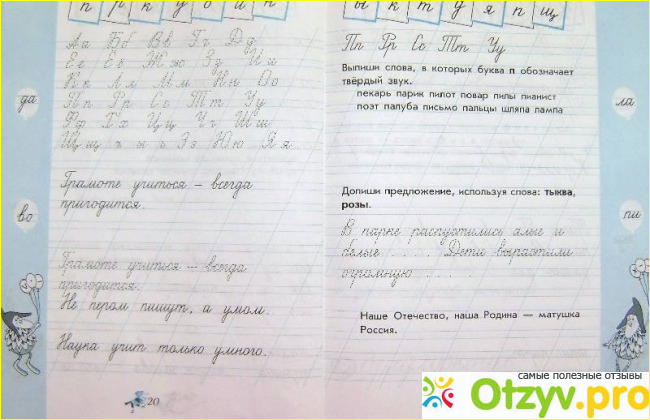 п р к у о и н
Аа Бб Вв Гг Дд
Ее Ёё Жж Зз Ии
Кк Лл Мм Нн Оо
Пп Рр Сс Тт Уу
Фф Хх Цц Чч Шш
Щщ ъ ы ь Ээ Юю Яя
да
во
Грамоте учиться – всегда
пригодится.
Грамоте учиться – всегда
пригодится.
Не пером пишут, а умом.
Наука учит только умного.
20
ы к т д я п щ
Пп Рр Сс Тт Уу
Выпиши слова, в которых буква п обозначает
твёрдый звук.
пекарь парик пилот повар пилы пианист
поэт палуба письмо пальцы шляпа лампа
ла
пи
Допиши предложение, используя слова: тыква,
розы.
В парке распустились алые и
белые . . . . . Дети вырастили
огромную . . . . .
Наше Отечество, наша Родина — матушка
Россия.
самые полезные отзывы
Otzyv.pro